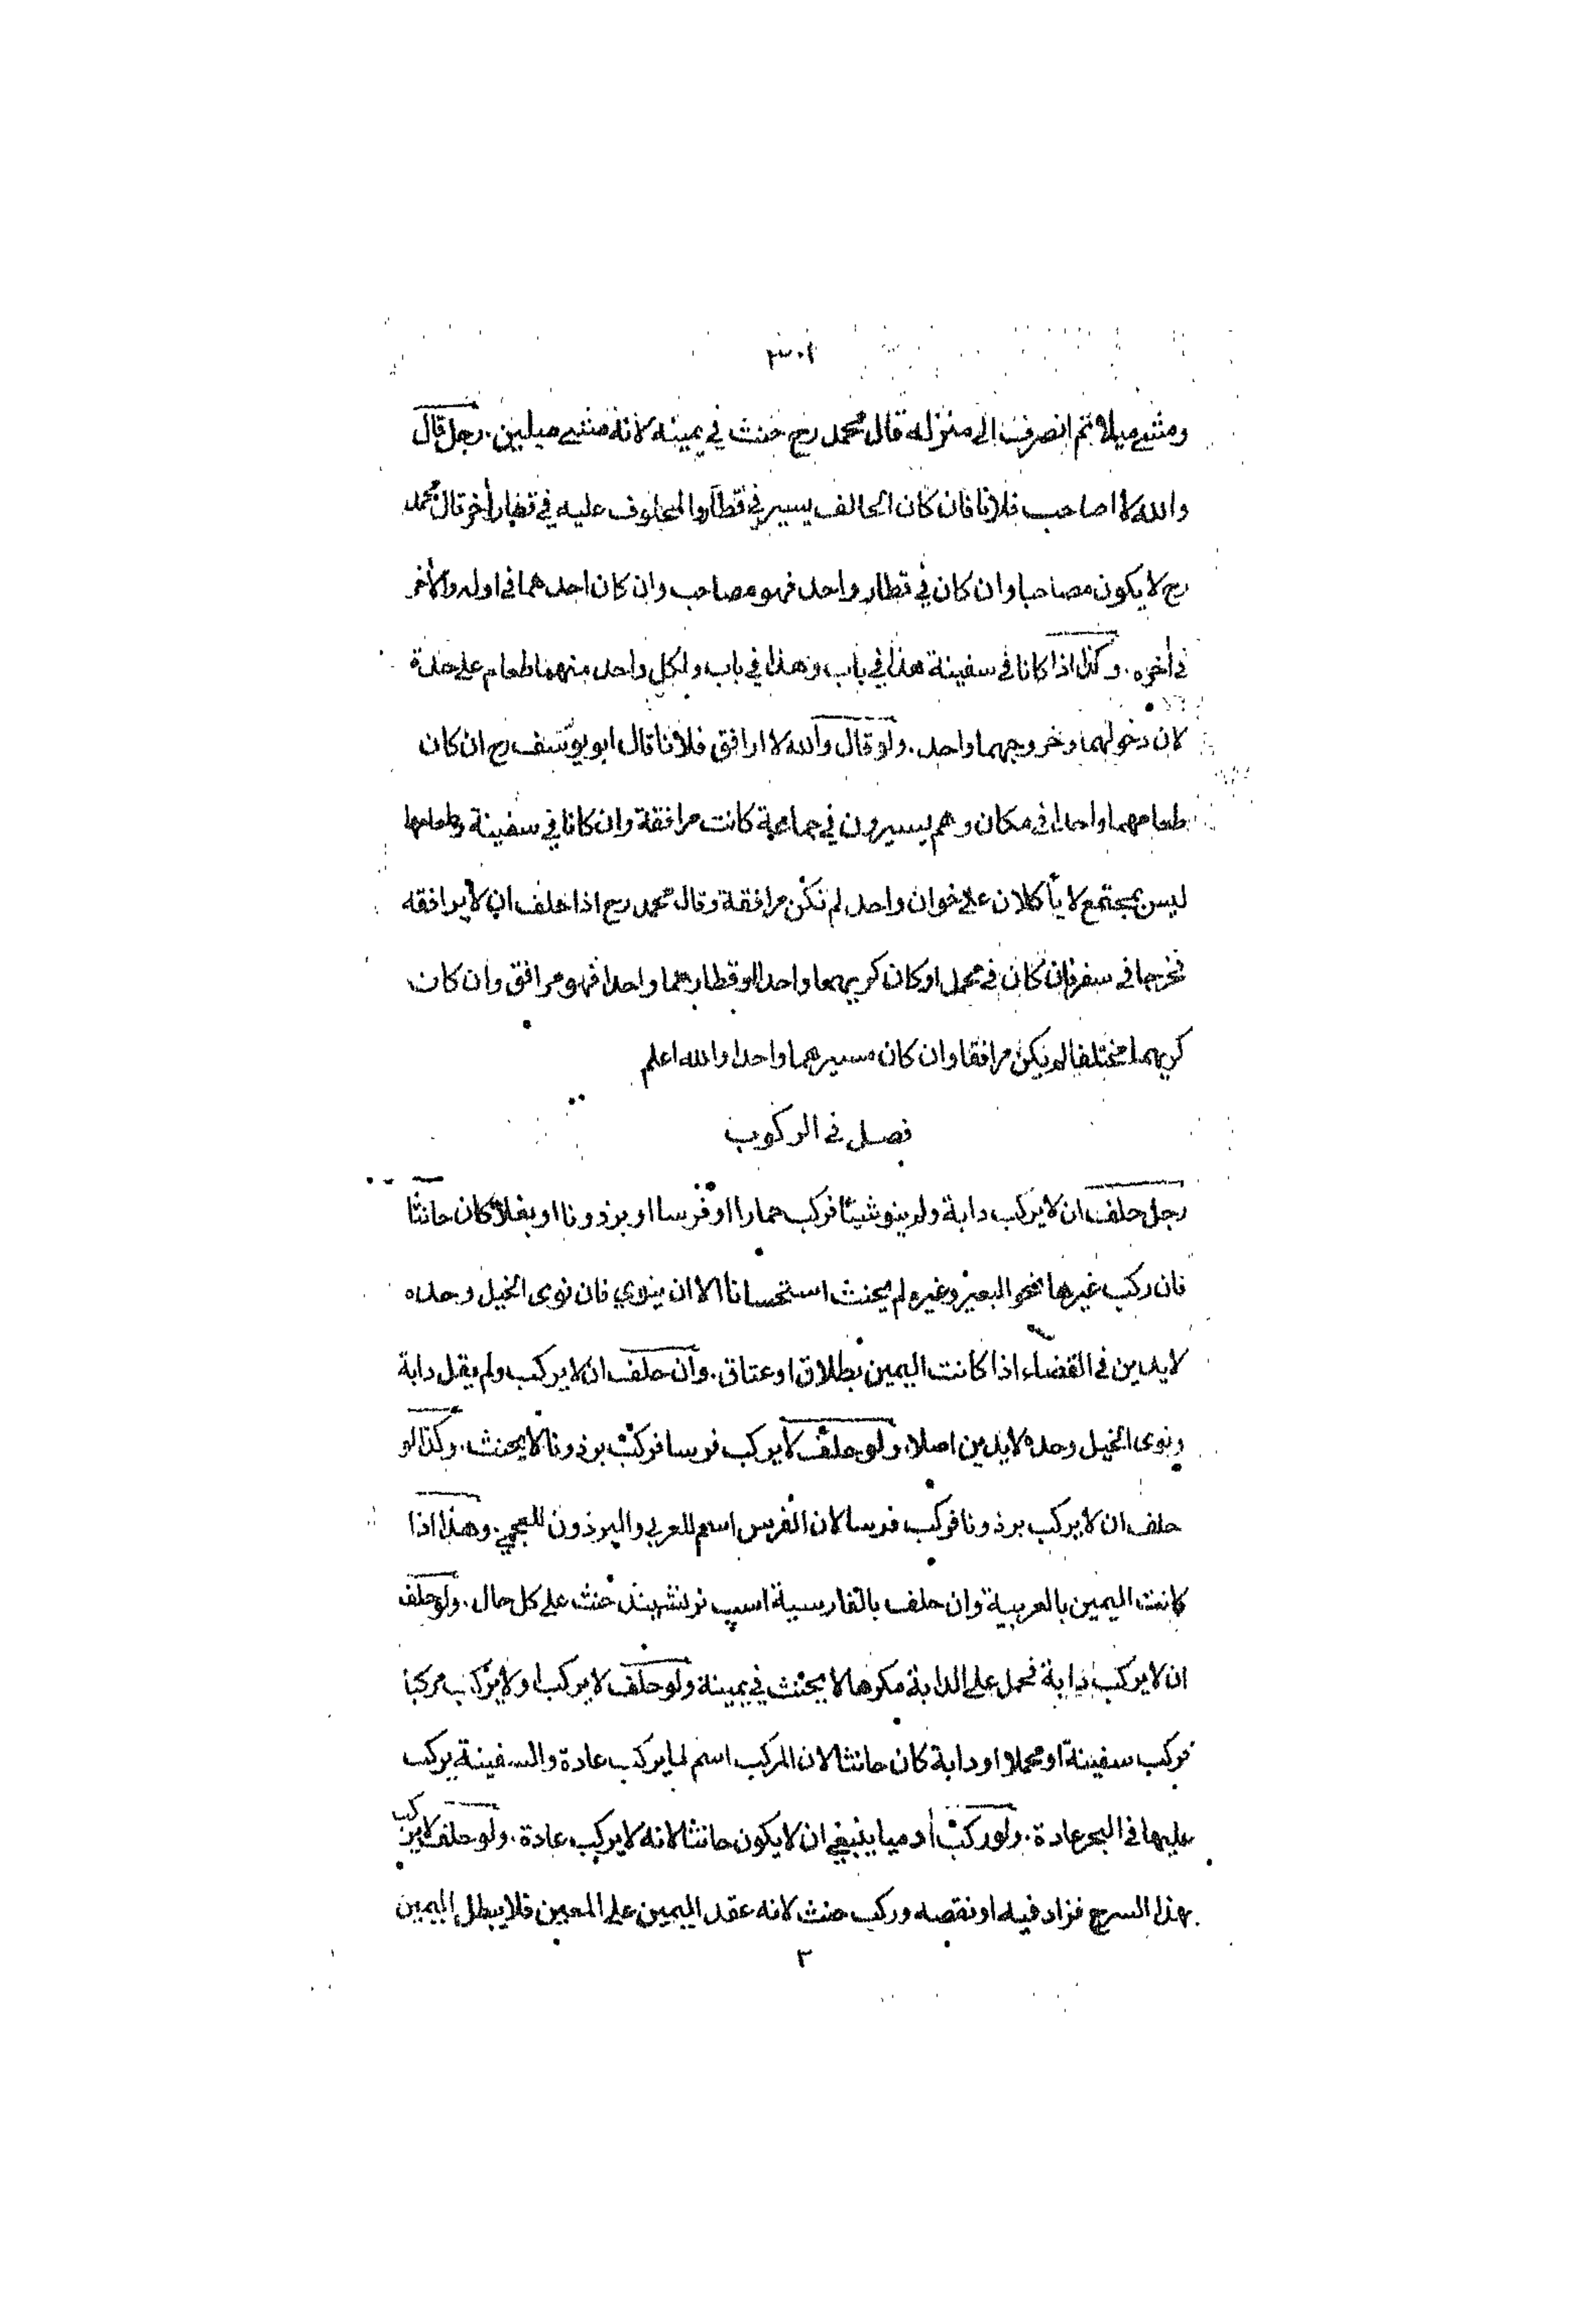 ٣٠٢
ومشي ميلا ثم انصرف الى منزله قال محمد رح حنث في يمينه لانه مشي ميلين . رجل قال
والله لا اصاحب فلانا فان كان الحالف يسير في قطار والمحلوف عليه في قطار أخر قال محمد
رح لا يكون مصاحبا وان كان في قطار واحد فهو مصاحب وان كان احدهما في اوله والأخر
في أخره . وكذا اذا كانا في سفينة هذا في باب وهذا في باب ولكل واحد منهما طعام على حدة
لان دخولهما وخروجهما واحد . ولو قال والله لا ارافق فلانا قال ابو يوسف رح ان كان
طعامهما واحدا في مكان وهم يسيرون في جماعة كانت مرافقة وان كانا في سفينة وطعامهما
ليس بمجتمع لا يأكلان على خوان واحد لم تكن مرافقة وقال محمد رح اذا حلف ان لا يرافقه
فخرجا في سفر فان كان في محمل او كان كريهما واحدا او قطارهما واحدا فهو مرافق وان كان
كريهما مختلفا لم يكن مرافقا وان كان مسيرهما واحدا والله اعلم
فصل في الركوب
رجل حلف ان لا يركب دابة ولم ينو شيئا فركب حمارا او فرسا او برذونا او بغلا كان حانثا
فان ركب غيرها نحو البعير وغيره لم يحنث استحسانا الا ان ينوي فان نوى الخيل وحده
لا يدين في القضاء اذا كانت اليمين بطلاق او عتاق . وان حلف ان لا يركب ولم يقل دابة
ونوى الخيل وحده لا يدين اصلا، ولو حلف لا يركب فرسا فركب برذونا لا يحنث . وكذا لو
حلف ان لا يركب برذونا فركب فرسا لان الفرس اسم للعربي والبرذون للعجمي . وهذا اذا
كانت اليمين بالعربية وان حلف بالفارسية اسپ برنشيند حنث على كل حال . ولو حلف
ان لا يركب دابة فحمل على الدابة مكرها لا يحنث في يمينه ولو حلف لا يركب او لا يركب مركبا
فركب سفينة او محملا او دابة كان حانثا لان المركب اسم لما يركب عادة والسفينة يركب
عليها في البحر عادة . ولو ركب أدميا ينبغي ان لا يكون حانثا لانه لا يركب عادة . ولو حلف لا يركب
بهذا السرج فزاد فيه او نقصه وركب حنث لانه عقد اليمين على المعين فلا يبطل اليمين
٣